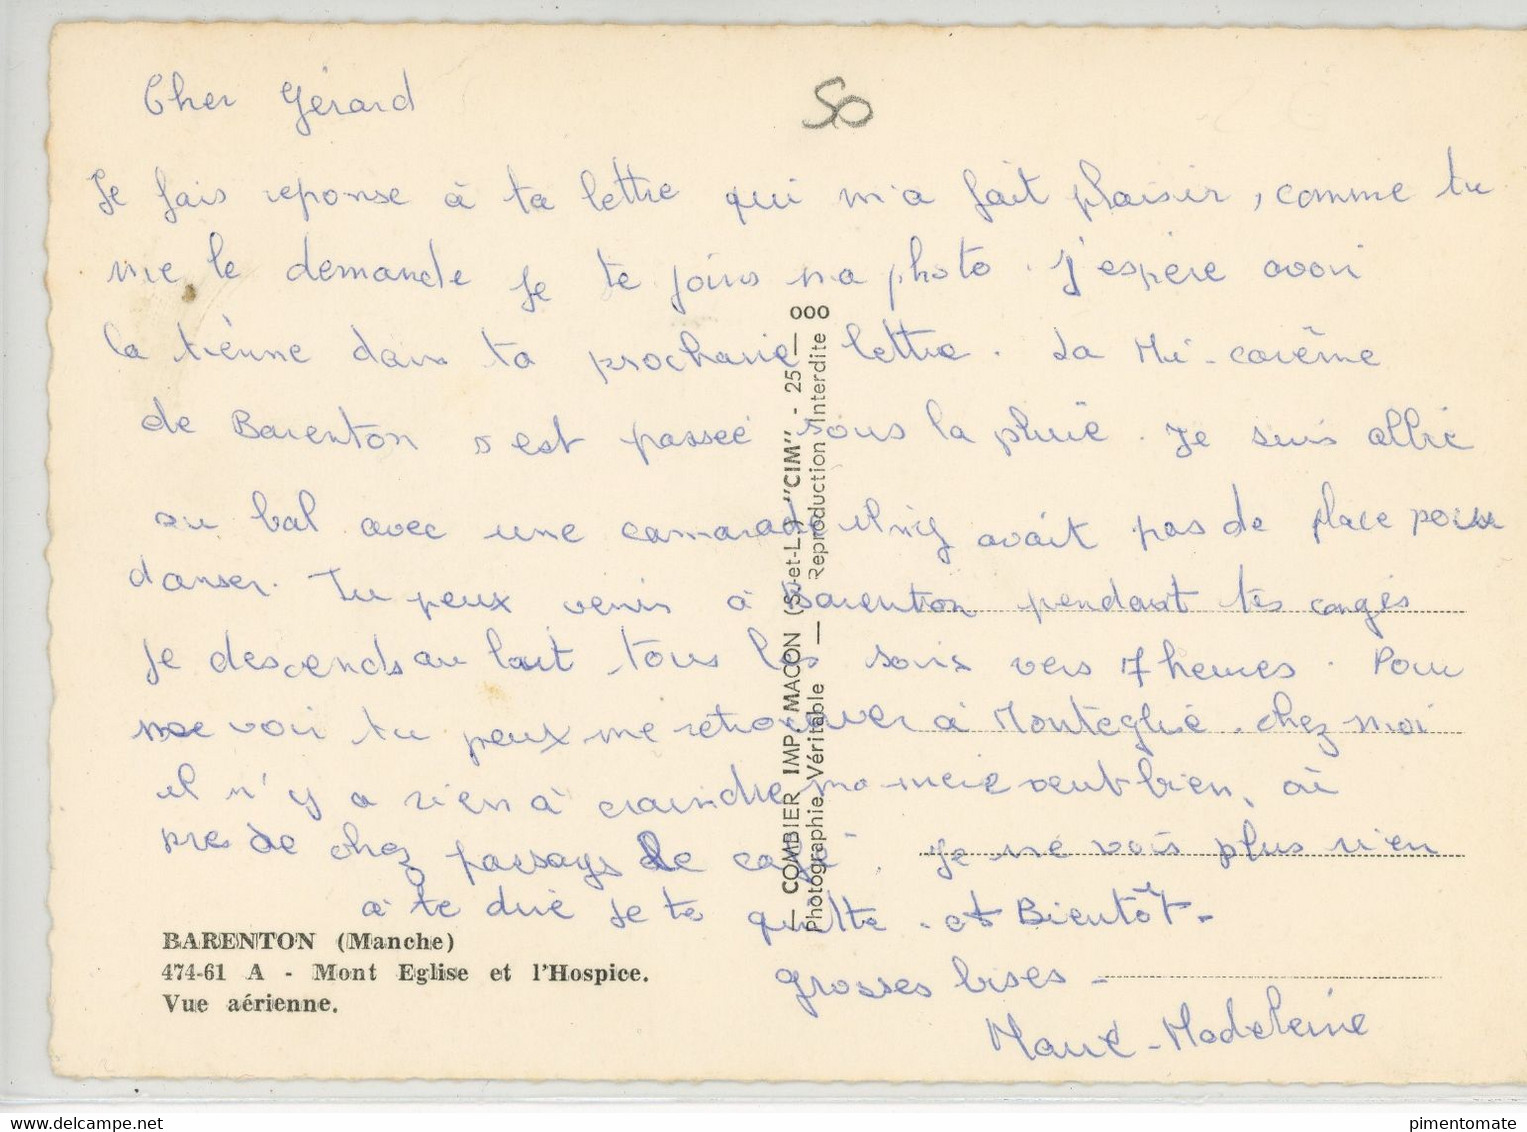 Cher Gérard
50
Je fais reponse à ta lettre qui m'a fait plaisir, comme tu
me le demande je te joins ma photo. J'espère avoir
la tienne dans ta prochaine lettre. La Mi-carême
de Barenton s'est passée sous la pluie. Je suis allée
au bal avec une camarade il n'y avait pas de place pour
danser. Tu peux venir à Barenton pendant tes congés
Je descends au lait tous les soirs vers 7 heures. Pour
me voir tu peux me retrouver à Montéglise. chez moi
il n'y a rien à craindre ma mère veut bien,
pres de chez Je ne vois plus rien
à te dire je te quitte. et Bientôt.
grosses bises -
Marie-Madeleine
BARENTON (Manche)
474-61 A - Mont Eglise et l'Hospice.
Vue aérienne.
— COMBIER IMP. MACON (S.-et-L.) "CIM" - 25 — ooo
Photographie Véritable — Reproduction Interdite
delcampe.net
pimentomate